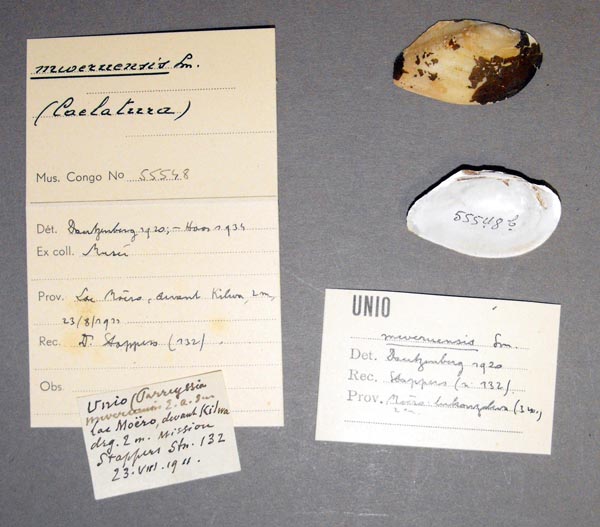 mweruensis Sm.
(Caelatura)
Mus. Congo No 55548
Dét. Dautzenberg 1920, - Haas 1934
Ex coll. Musée
Prov. Lac Moëro, devant Kilwa, 2 m,
23/8/1911
Rec. D. Stappers (132)
Obs.
Unio (Parreyssia
mweruensis
lac Moëro, devant Kilwa
drg. 2 m. Mission
Stappers Stn. 132
23.VIII.1911.
55548
UNIO
mweruensis Sm.
Det. Dautzenberg 1920
Rec. Stappers (n. 132)
Prov. Moëro: Lukonzolwa